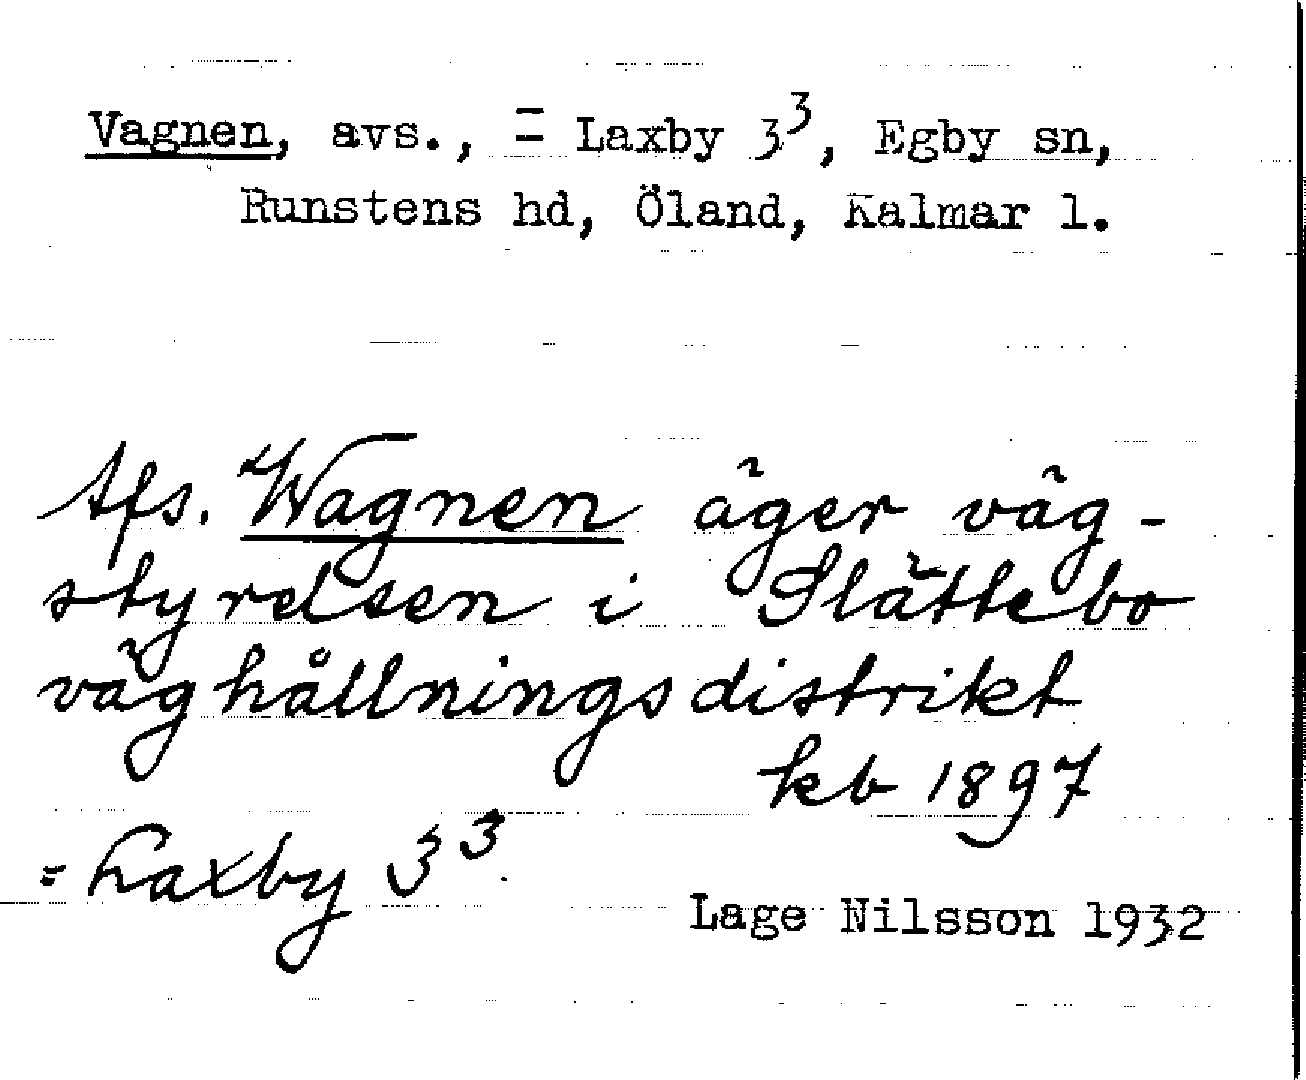 Vagnen, avs., = Laxby 3³, Egby sn,
Runstens hd, Öland, Kalmar l.
Afs. Wagnen äger väg-
styrelsen i Slättebo
väghållningsdistrikt
kb 1897
= Laxby 3³
Lage Nilsson 1932